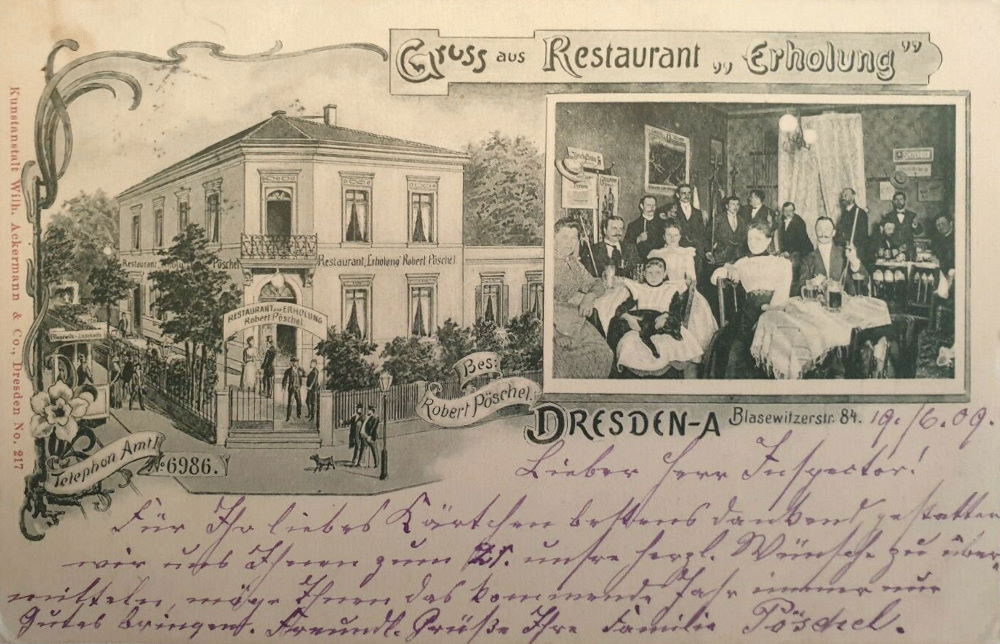 Gruss aus Restaurant „Erholung”
Kunstanstalt Wilh. Ackermann & Co., Dresden No. 217
Restaurant Pöschel
Restaurant „Erholung” Robert Pöschel
RESTAURANT zur ERHOLUNG
Robert Pöschel.
Bes:
Robert Pöschel.
Telephon Amt I
No 6986.
DRESDEN-A Blasewitzerstr. 84. 19./6.09.
Lieber Herr Inspector!
Für Ihr liebes Kärtchen bestens dankend, gestatten
wir uns Ihnen zum 21. unsre herzl. Wünsche zu über
mitteln, möge Ihnen das kommende Jahr immer nur
Gutes bringen. Freundl. Grüße Ihre Familie Pöschel.